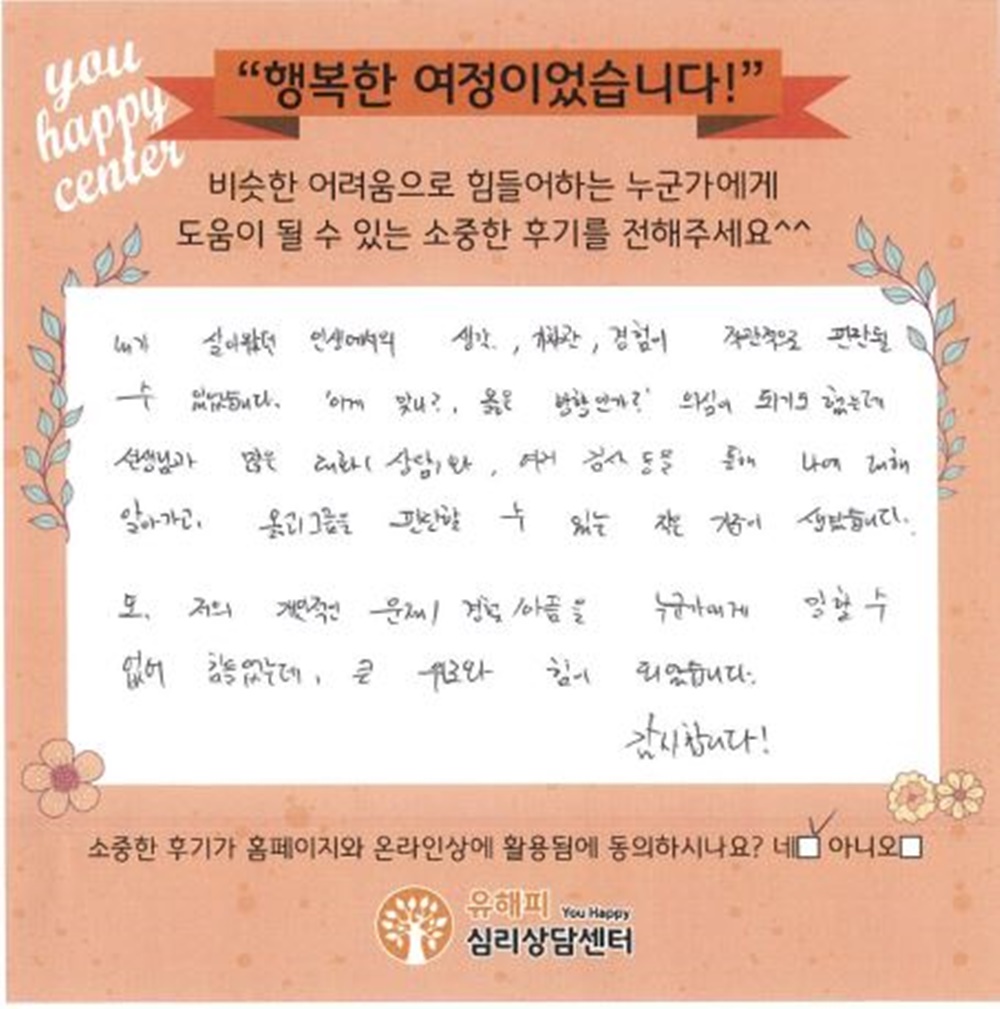 you
happy
center
“행복한 여정이었습니다!”
비슷한 어려움으로 힘들어하는 누군가에게
도움이 될 수 있는 소중한 후기를 전해주세요^^
내가 살아왔던 인생에서의 생각, 가치관, 경험이 직관적으로 판단될
수 있었습니다. '이게 맞나?, 옳은 방향인가?' 의심이 되기도 했는데
선생님과 많은 대화(상담)와, 여러 검사 등을 통해 나에 대해
알아가고, 옳고 그름을 판단할 수 있는 작은 기준이 생겼습니다.
또, 저의 개인적인 문제/경험/아픔을 누군가에게 말할 수
없어 힘들었는데, 큰 위로와 힘이 되었습니다.
감사합니다!
소중한 후기가 홈페이지와 온라인상에 활용됨에 동의하시나요? 네 아니오
유해피 You Happy
심리상담센터